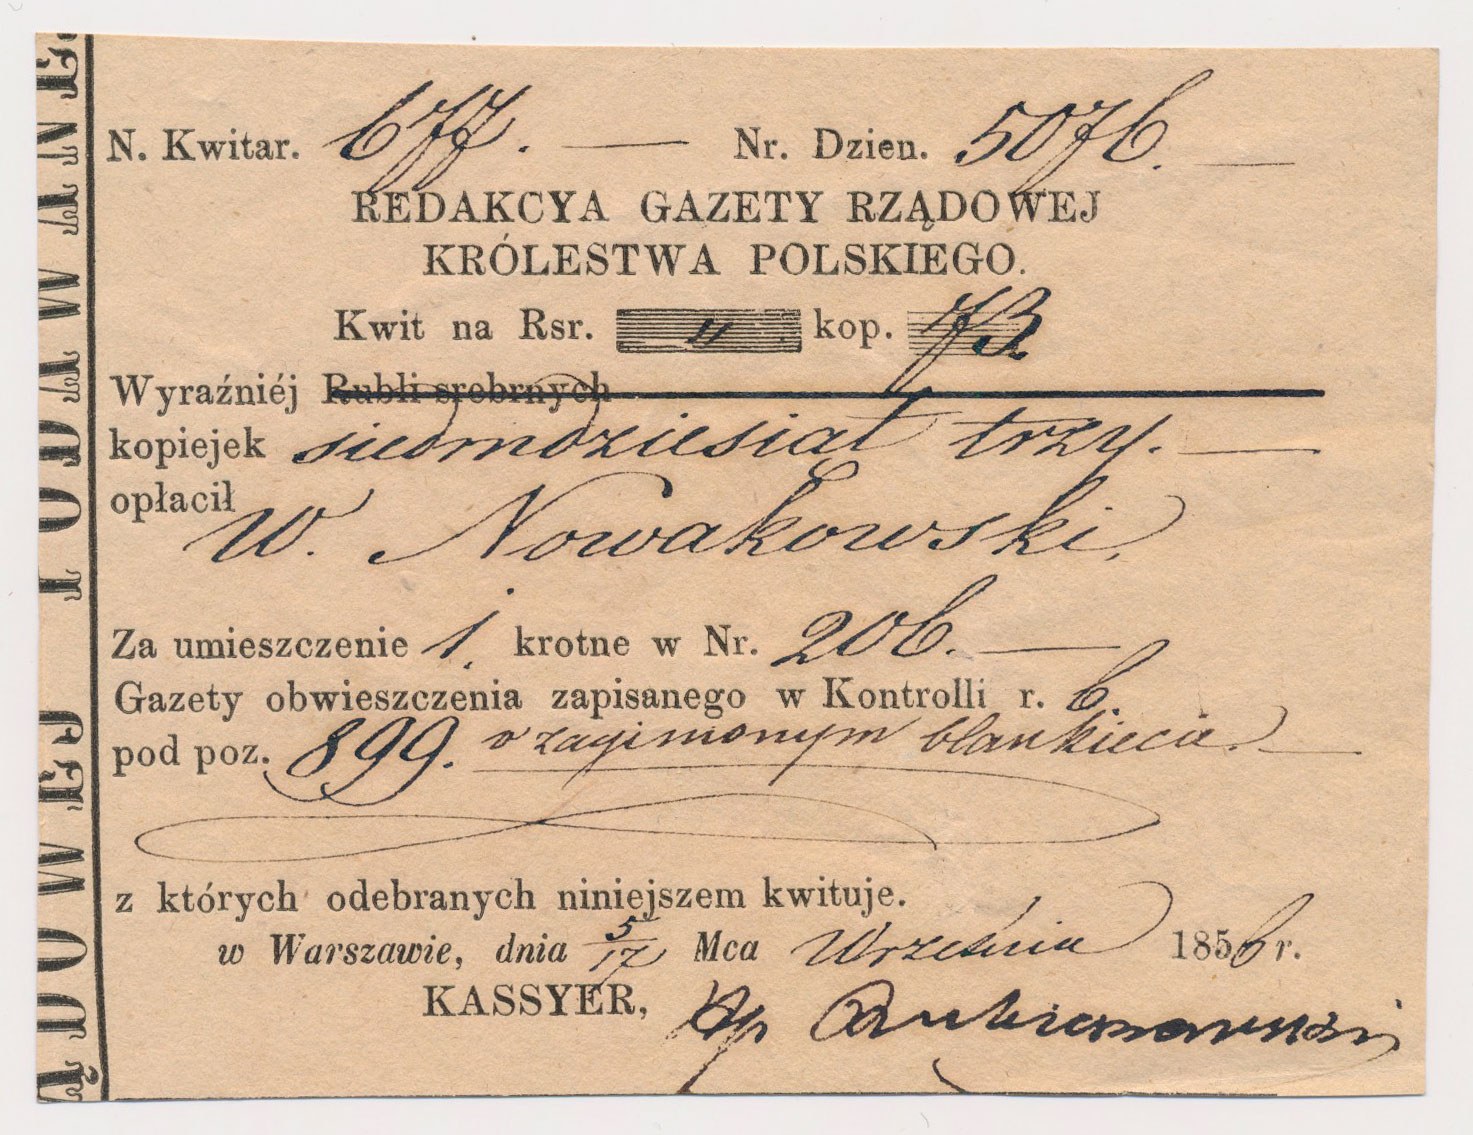 N. Kwitar. 677. — Nr. Dzien. 5076. —
REDAKCYA GAZETY RZĄDOWEJ
KRÓLESTWA POLSKIEGO.
Kwit na Rsr. " kop. 73
Wyraźniéj Rubli srebrnych
kopiejek siedmdziesiat trzy. —
opłacił
W. Nowakowski,
Za umieszczenie 1. krotne w Nr. 206. —
Gazety obwieszczenia zapisanego w Kontrolli r. 6.
pod poz. 899. o zaginionym blankiecie. —
z których odebranych niniejszem kwituje.
w Warszawie, dnia 5/17 Mca Września 1856 r.
KASSYER,